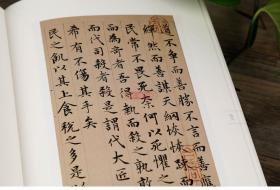 道不爭而善勝不言而善應
繟然而善謀天網恢恢踈而
民常不畏死奈何以死懼之
而為奇者吾得執而殺之孰
而代司殺者殺是謂代大匠
希有不傷其手矣
民之飢以其上食稅之多是以